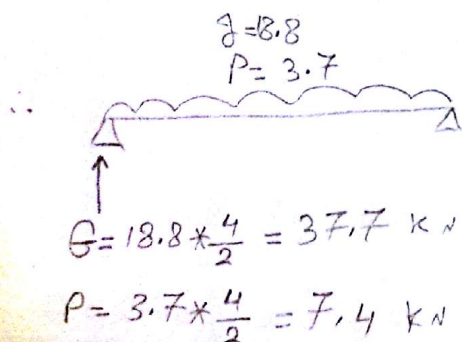 g=18.8
P= 3.7
∴
G= 18.8 * 4/2 = 37.7 KN
P= 3.7 * 4/2 = 7.4 KN